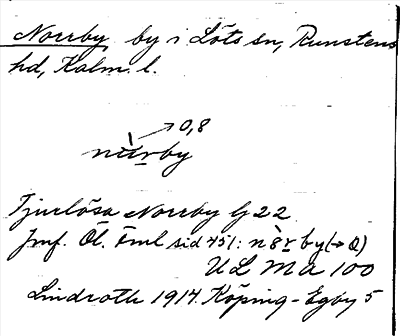 Norrby by i Löts sn, Runstens
hd, Kalm. l.
→ 0,8
nùrby
Tjuslösa Norrby G 22
Jmf. Öl. Öml sid 451: n8̀r by (→ Q)
ULMA 100
Lindroth 1914. Köping - Egby 5